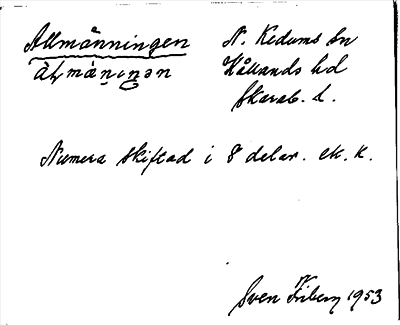 Allmänningen
N. Kedums Sn
Hållands hd
Skarab. L.
Numera skiftad i 8 delar. ek. k.
Sven Friberg 1953